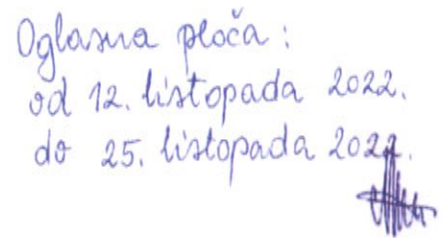 Oglasna ploča:
od 12. listopada 2022.
do 25. listopada 2022.